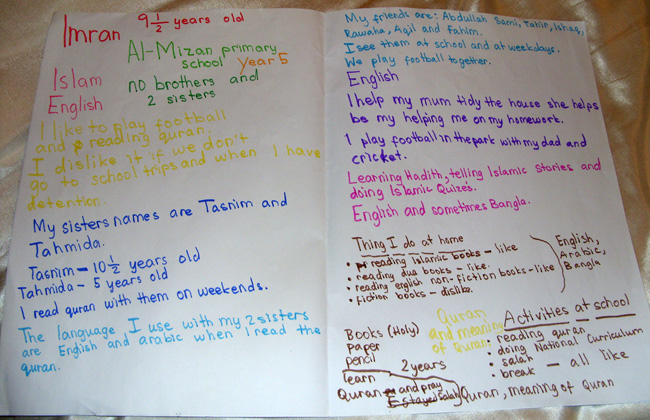 Imran 9 1/2 years old
Al-Mizan primary
school Year 5
Islam
English
no brothers and
2 sisters
I like to play football
and reading quran.
I dislike it if we don't
go to school trips and when I have
detention.
My sisters names are Tasnim and
Tahmida.
Tasnim - 10 1/2 years old
Tahmida - 5 years old
I read quran with them on weekends.
The language I use with my 2 sisters
are English and arabic when I read the
quran.
My friends are: Abdullah Sami, Tahir, Ishaq,
Rawaha, Aqil and Fahim.
I see them at school and at weekdays.
We play football together.
English
I help my mum tidy the house she helps
be my helping me on my homework.
I play football in the park with my dad and
cricket.
Learning Hadith, telling Islamic stories and
doing Islamic Quizes.
English and sometimes Bangla.
Thing I do at home
• reading islamic books - like
• reading dua books - like.
• reading english non-fiction books - like
• fiction books - dislike.
English,
Arabic,
Bangla
Books (Holy)
paper
pencil
Quran
and meaning
of Quran
Activities at school
• reading quran
• doing National Curriculum
• salah
• break - all like
learn 2 years
Quran and pray
Salah
Quran, meaning of Quran